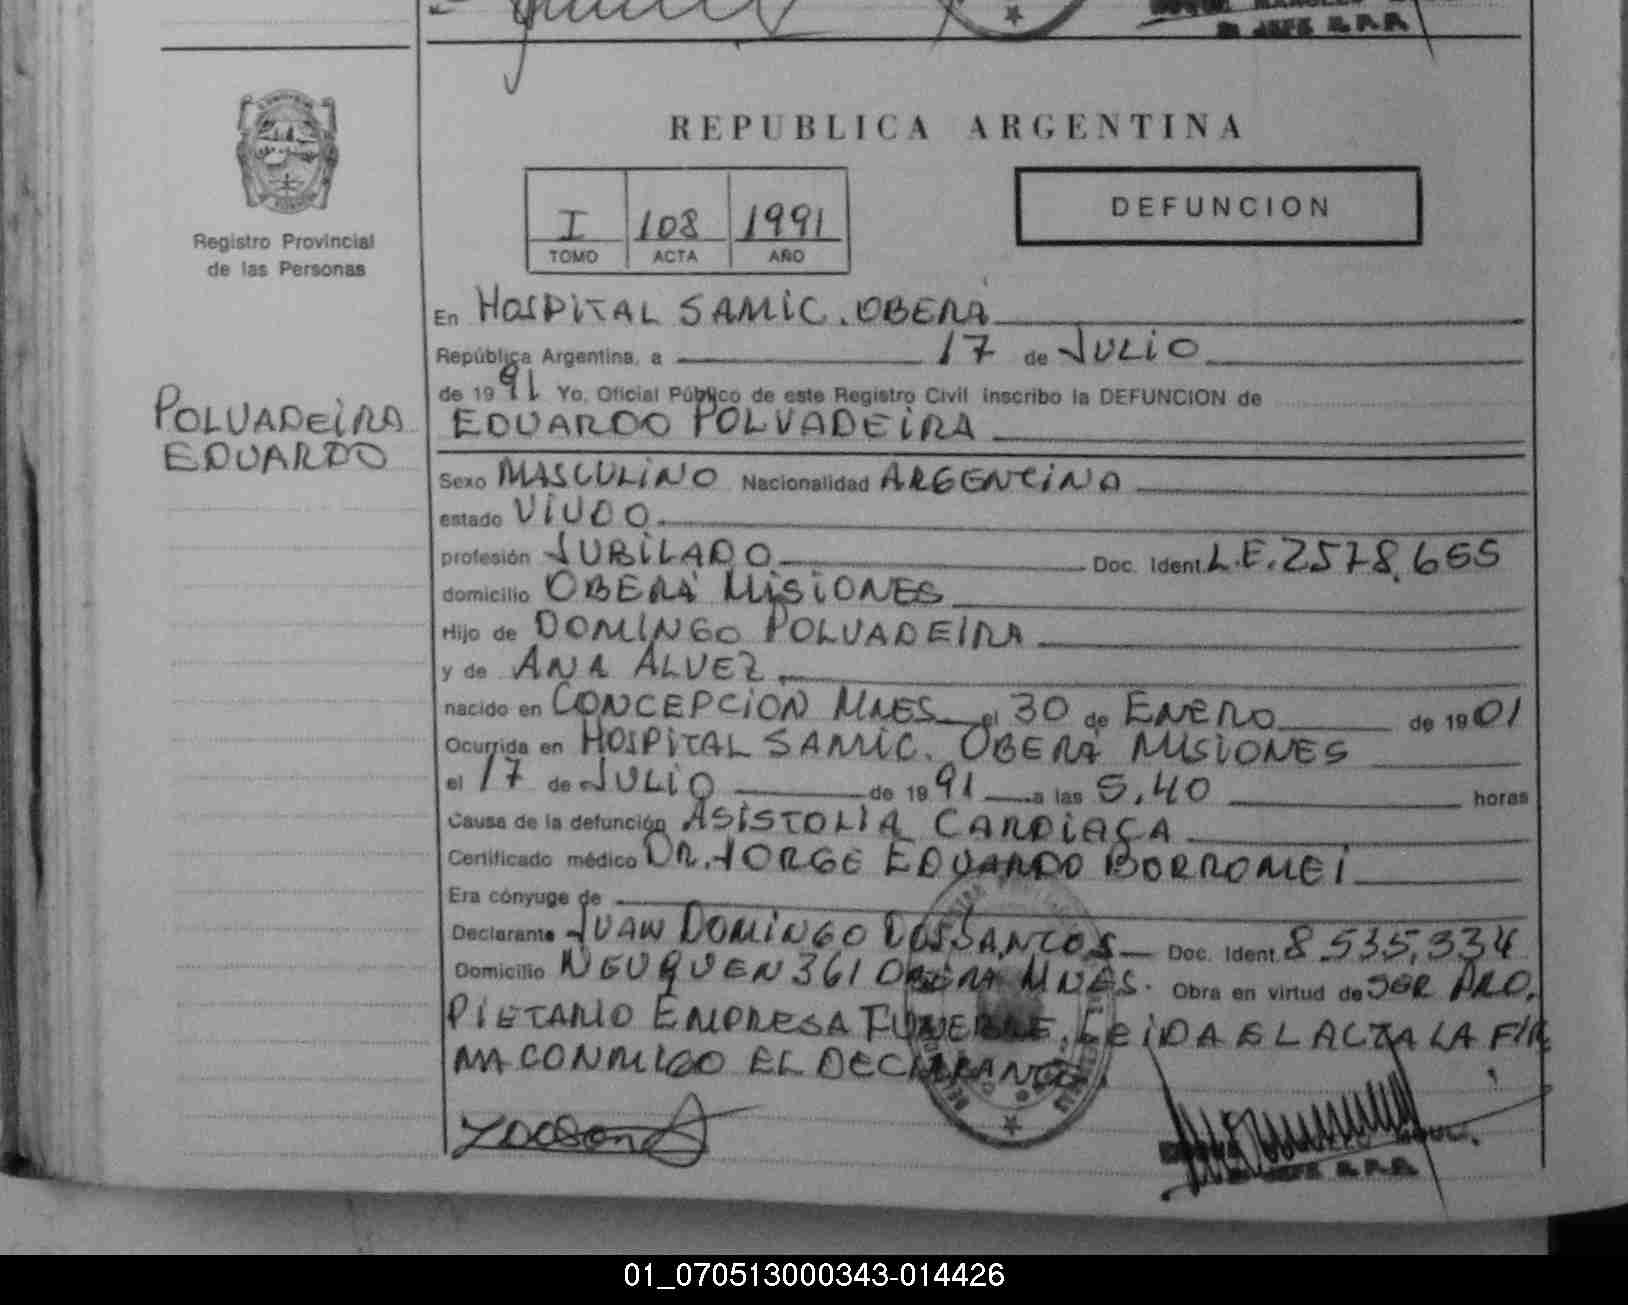 REPUBLICA ARGENTINA
I 108 1991
TOMO ACTA AÑO
DEFUNCION
Registro Provincial
de las Personas
POLVADEIRA
EDUARDO
En HOSPITAL SAMIC. OBERÁ
República Argentina, a 17 de JULIO
de 1991 Yo, Oficial Público de este Registro Civil inscribo la DEFUNCION de
EDUARDO POLVADEIRA
Sexo MASCULINO Nacionalidad ARGENTINA
estado VIUDO
profesión JUBILADO Doc. Ident. L.E. 2578.655
domicilio OBERÁ MISIONES
Hijo de DOMINGO POLVADEIRA
y de ANA ALVEZ
nacido en CONCEPCION MNES el 30 de ENERO de 1901
Ocurrida en HOSPITAL SAMIC. OBERÁ MISIONES
el 17 de JULIO de 1991 a las 5,40 horas
Causa de la defunción ASISTOLIA CARDIACA
Certificado médico DR. JORGE EDUARDO BORROMEI
Era cónyuge de
Declarante JUAN DOMINGO DOSSANTOS Doc. Ident. 8.535,334
Domicilio NEUQUEN 361 OBERA MNES. Obra en virtud de SER PRO.
PIETARIO EMPRESA FUNEBRE. LEIDA EL ACTA LA FIR
MA CONMIGO EL DECLARANTE
01_070513000343-014426